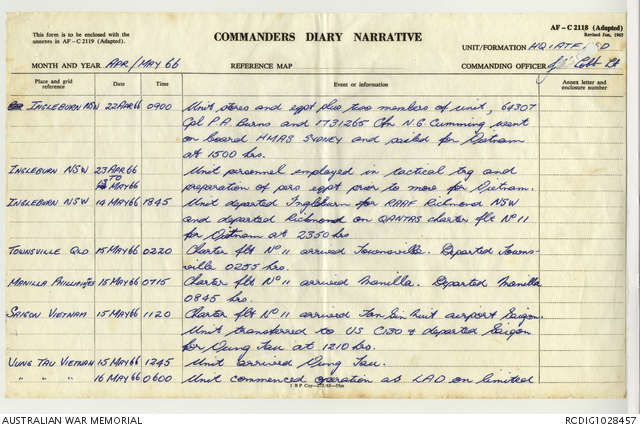 This form is to be enclosed with the
annexes in AF – C 2119 (Adapted).
COMMANDERS DIARY NARRATIVE
AF – C 2118 (Adapted)
Revised Jan, 1965
UNIT/FORMATION HQ 1 ATF
MONTH AND YEAR APR/MAY 66
REFERENCE MAP
COMMANDING OFFICER Cobb Lt
Place and grid reference Date Time Event or information Annex letter and enclosure number
INGLEBURN NSW 22 APR 66 0900 Unit stores and eqpt plus two members of unit, 64307
Cpl P.A. Burns and 1731265 Cfn N.G. Cumming went
on board HMAS SYDNEY and sailed for Vietnam
at 1500 hrs.
INGLEBURN NSW 23 APR 66 Unit personnel employed in tactical trg and
TO 13 MAY 66 preparation of pers eqpt prior to move for Vietnam.
INGLEBURN NSW 14 MAY 66 1845 Unit departed Ingleburn for RAAF Richmond NSW
and departed Richmond on QANTAS charter flt No 11
for Vietnam at 2350 hrs
TOWNSVILLE QLD 15 MAY 66 0220 Charter flt No 11 arrived Townsville. Departed Towns-
ville 0255 hrs.
MANILLA PHILLIPINES 15 MAY 66 0715 Charter flt No 11 arrived Manilla. Departed Manilla
0845 hrs.
SAIGON VIETNAM 15 MAY 66 1120 Charter flt No 11 arrived Tan Sin Nuit airport Saigon.
Unit transferred to US C130 & departed Saigon
for Vung Tau at 1210 hrs.
VUNG TAU VIETNAM 15 MAY 66 1245 Unit arrived Vung Tau.
" " " 16 MAY 66 0600 Unit commenced operation as LAD on limited
AUSTRALIAN WAR MEMORIAL
RCDIG1028457